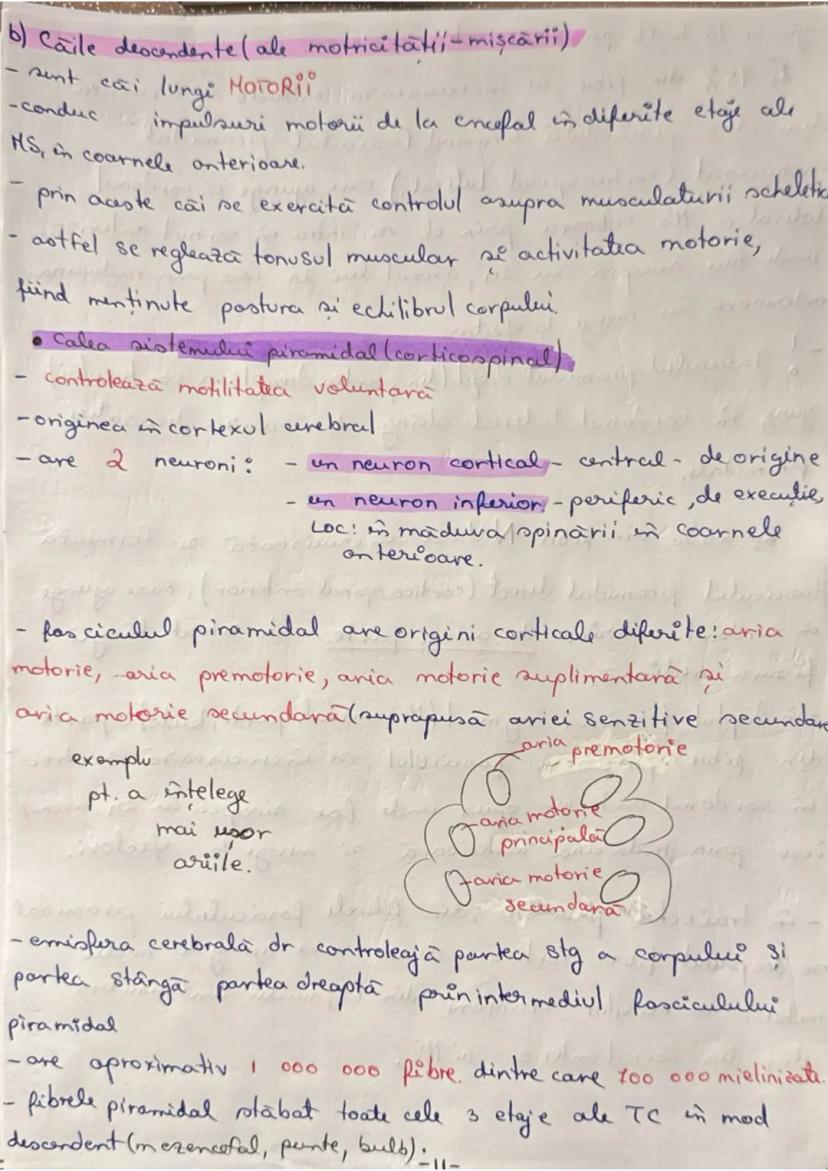 b) Căile descendente (ale motricității-mișcării)
- sunt căi lungi MOTORII
- conduc impulsuri motorii de la encefal în diferite etaje ale
MS, în coarnele anterioare.
- prin aceste căi se exercită controlul asupra musculaturii scheletic
- astfel se reglează tonusul muscular și activitatea motorie,
fiind menținute postura și echilibrul corpului.
• Calea sistemului piramidal (corticospinal)
- controlează motilitatea voluntară
- originea în cortexul cerebral
- are 2 neuroni: - un neuron cortical - central - de origine
- un neuron inferior - periferic, de execuție,
Loc: în măduva spinării în coarnele
anterioare.
- fasciculul piramidal are origini corticale diferite: aria
motorie, aria premotorie, aria motorie suplimentară și
aria motorie secundară (suprapusă ariei senzitive secundare
aria premotorie
exemplu
pt. a înțelege
mai ușor
ariile.
aria motorie
principală
aria motorie
secundară
- emisfera cerebrală dr controleajă partea stg a corpului și
partea stângă partea dreaptă prin intermediul fasciculului
piramidal
- are aproximativ 1 000 000 fibre. dintre care 700 000 mielinizate.
- fibrele piramidal stăbat toate cele 3 etaje ale TC în mod
descendent (mezencefal, punte, bulb).
-11-